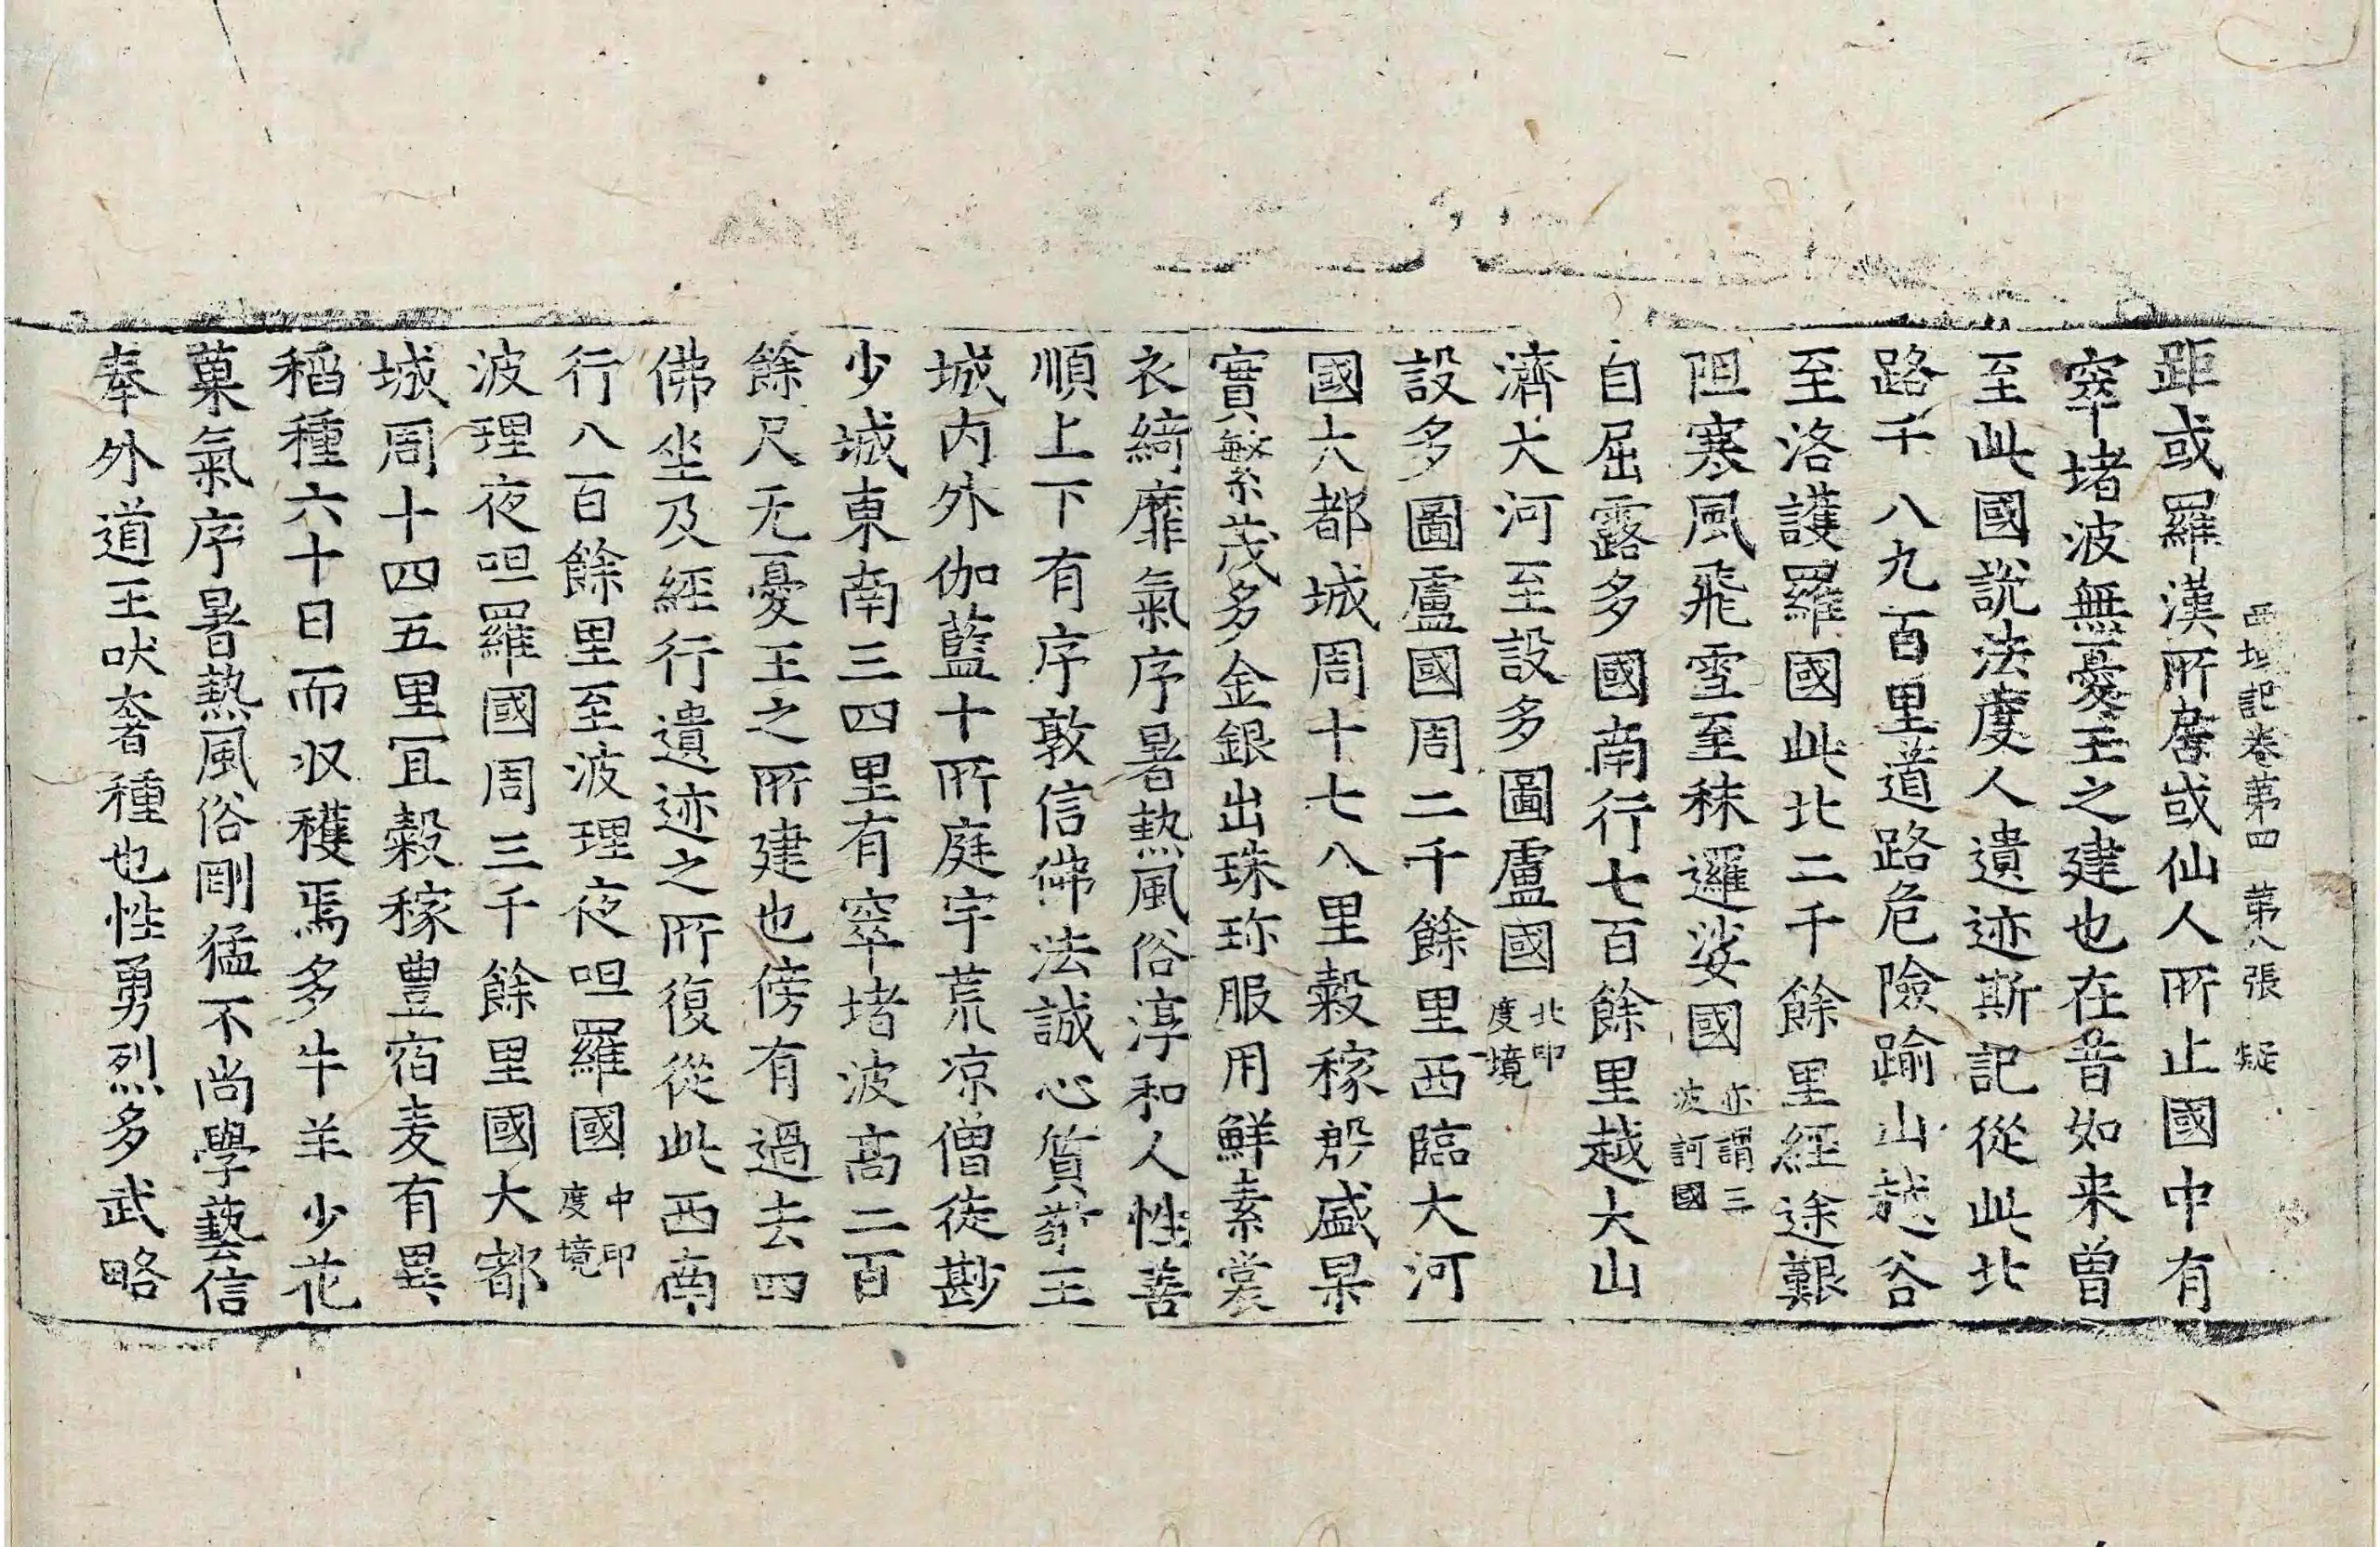 西域記卷第四 第八張 疑
距或羅漢所居或仙人所止國中有
窣堵波無憂王之建也在昔如来曽
至此國說法度人遺迹斯記從此北
路千八九百里道路危險踰山越谷
至洛護羅國此北二千餘里經途艱
阻寒風飛雪至秣邏娑國亦謂三波訶國
自屈露多國南行七百餘里越大山
濟大河至設多圖盧國北印度境
設多圖盧國周二千餘里西臨大河
國大都城周十七八里穀稼殷盛果
實繁茂多金銀出珠珎服用鮮素裳
衣綺靡氣序暑熱風俗淳和人性善
順上下有序敦信佛法誠心質敬王
城内外伽藍十所庭宇荒凉僧徒尠
少城東南三四里有窣堵波高二百
餘尺无憂王之所建也傍有過去四
佛坐及經行遺迹之所復從此西南
行八百餘里至波理夜呾羅國中印度境
波理夜呾羅國周三千餘里國大都
城周十四五里冝穀稼豊宿麦有異
稻種六十日而収穫焉多牛羊少花
菓氣序暑熱風俗剛猛不尚學藝信
奉外道王吠奢種也性勇烈多武略